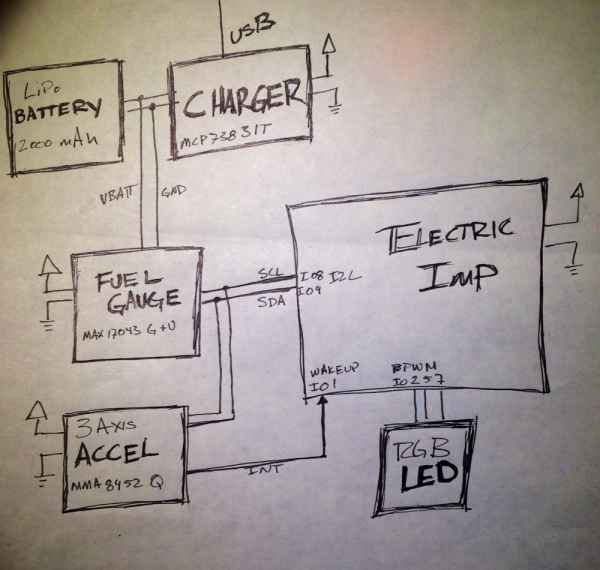 USB
LiPo
BATTERY
2000 mAh
CHARGER
MCP73831T
VBATT
GND
FUEL
GAUGE
MAX17043 G+U
SCL
SDA
IO8 I2C
IO9
ELECTRIC
IMP
WAKEUP
IO1
BPWM
IO257
3 AXIS
ACCEL
MMA8452 Q
INT
RGB
LED